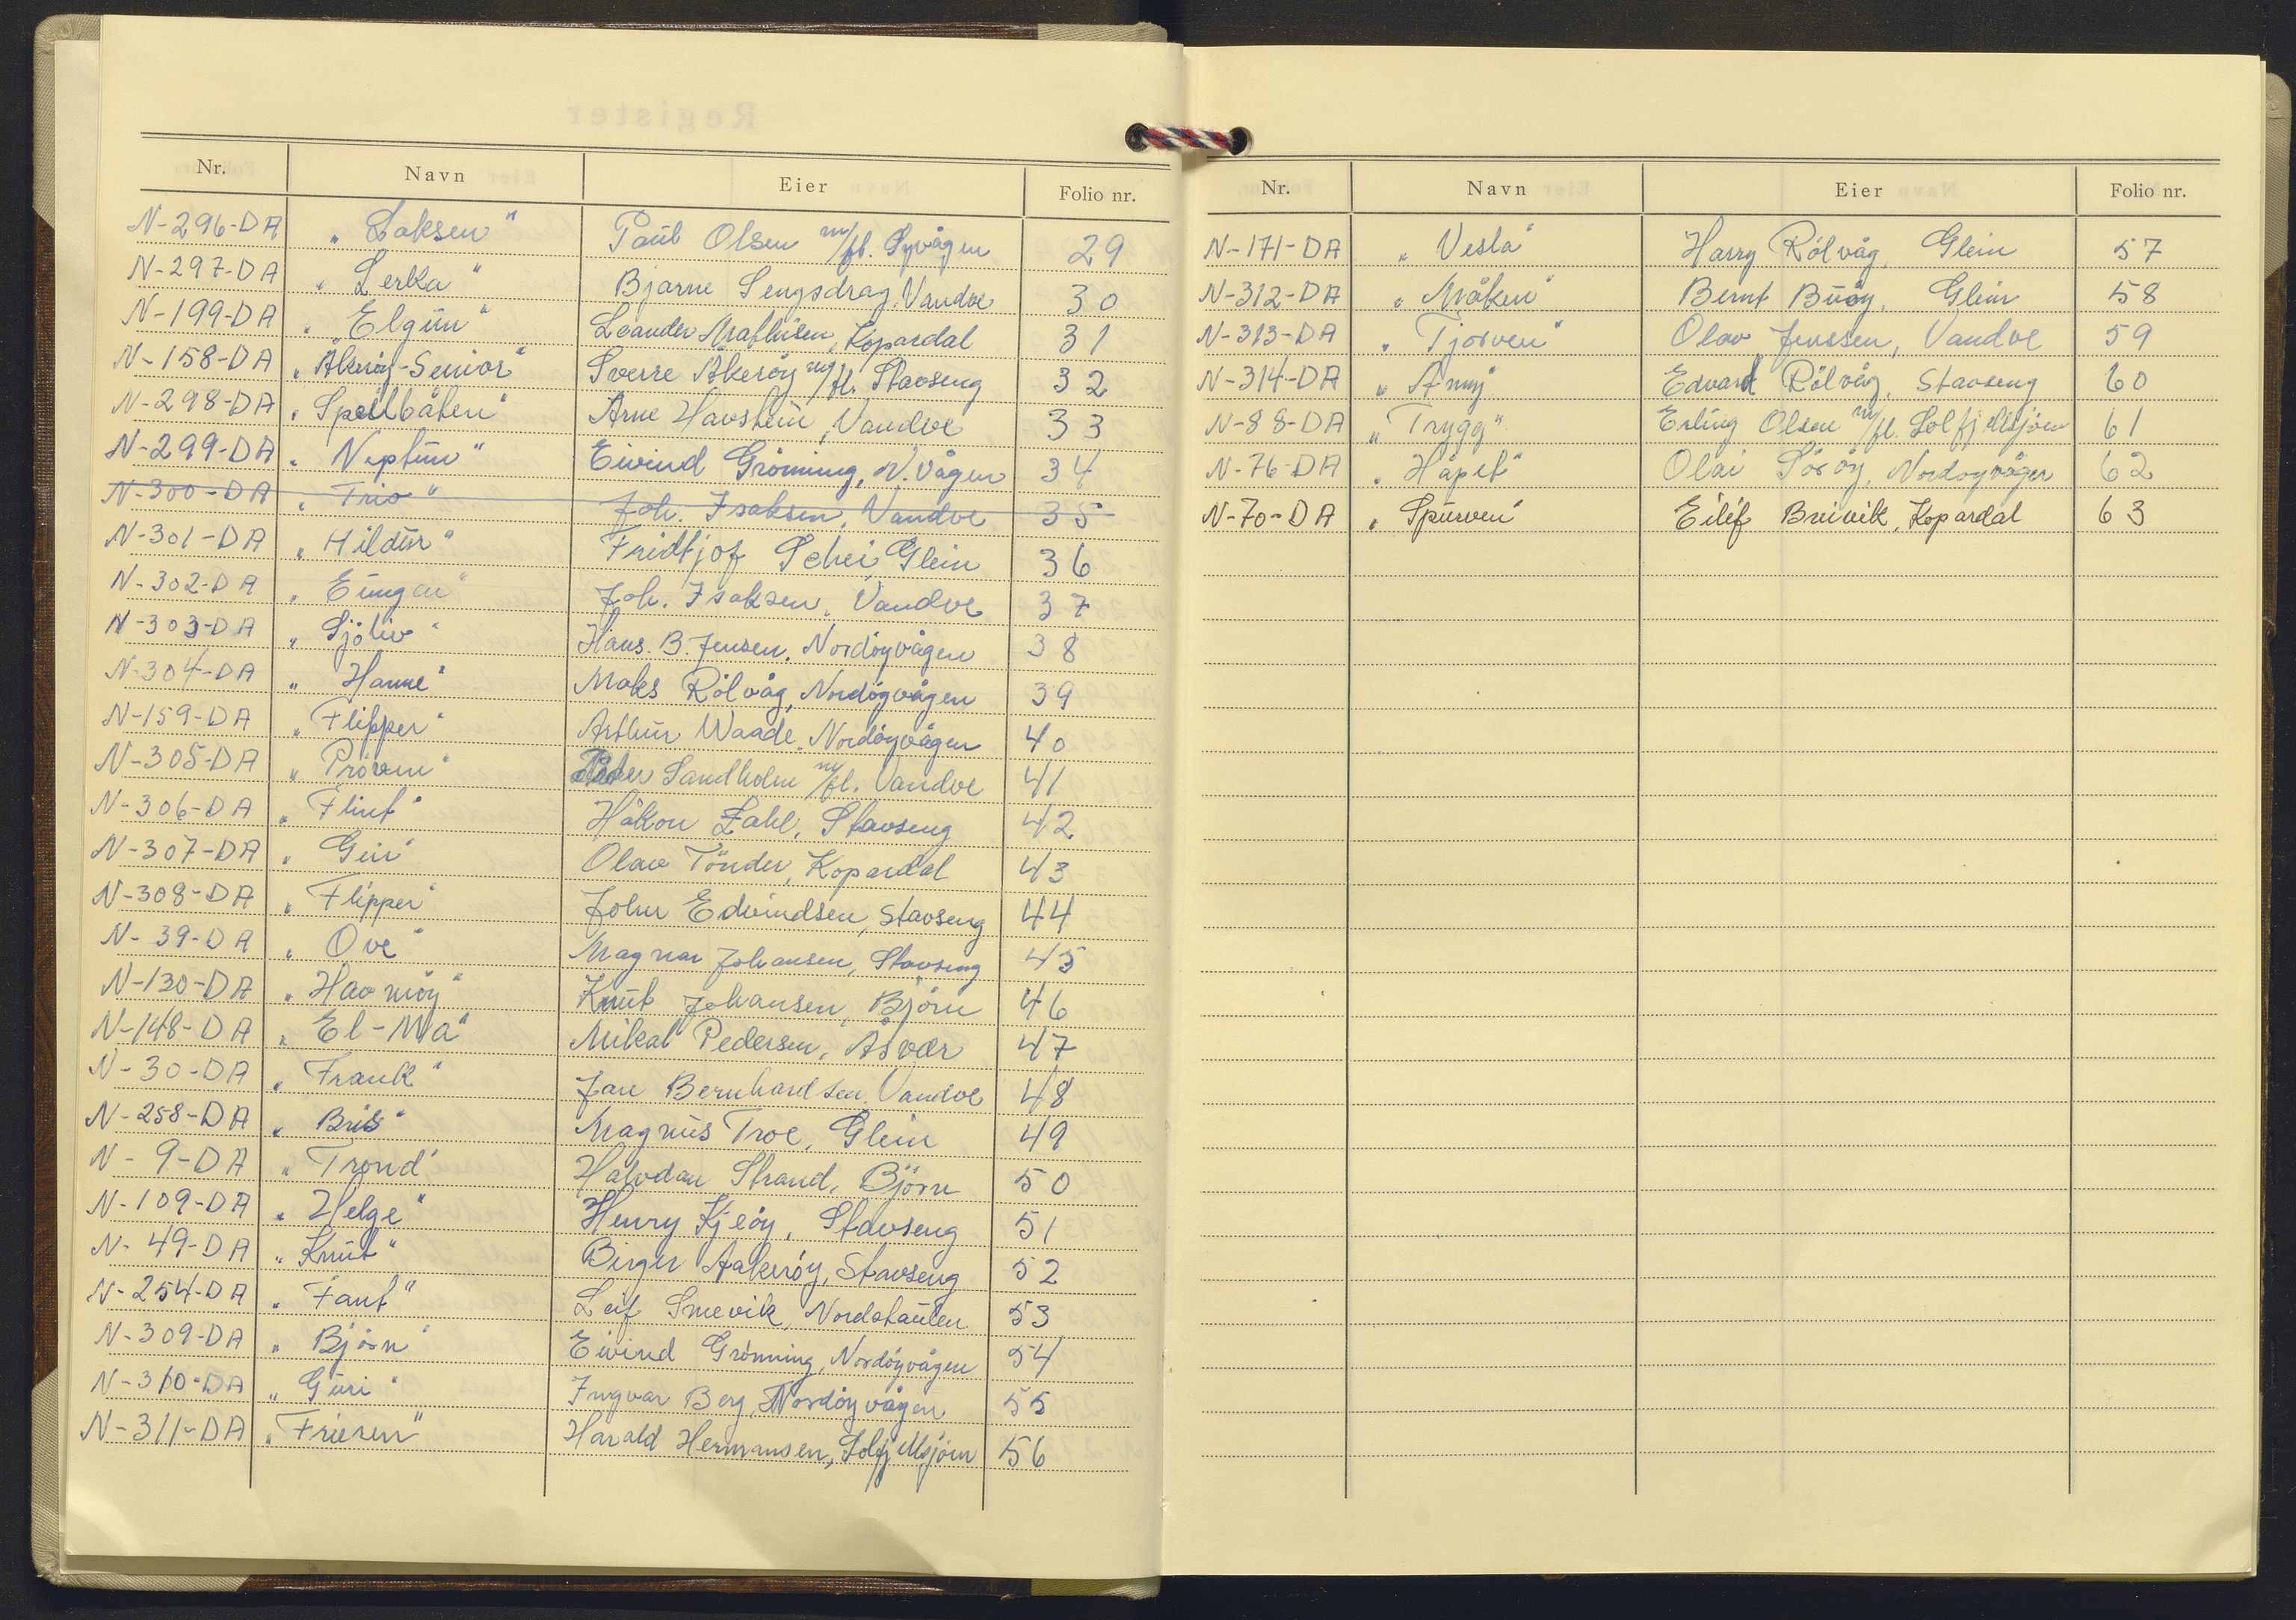 Nr. Navn Eier Folio nr.
N-296-DA „Laksen" Paul Olsen m/fl. Syvågen 29
N-297-DA „Lerka" Bjarne Sengsdrag, Vandve 30
N-199-DA „Elgun" Leander Mathisen, Kopardal 31
N-158-DA „Åkerøy-Senior" Sverre Åkerøy m/fl. Stavseng 32
N-298-DA „Speilbåten" Arne Havstein, Vandve 33
N-299-DA „Neptun" Eivind Grönning, N.Vågen 34
N-300-DA „Trio" Joh. Isaksen, Vandve 35
N-301-DA „Hildur" Fridtjof Schei, Glein 36
N-302-DA „Eungen" Joh. Isaksen, Vandve 37
N-303-DA „Sjöliv" Hans. B. Jensen, Nordöyvågen 38
N-304-DA „Hanne" Maks Rölvåg, Nordöyvågen 39
N-159-DA „Flipper" Arthur Waade, Nordöyvågen 40
N-305-DA „Pröven" Peder Sandholm m/fl. Vandve 41
N-306-DA „Flint" Håkon Zahl, Stavseng 42
N-307-DA „Geir" Olav Tönder, Kopardal 43
N-308-DA „Flipper" John Edvindsen, Stavseng 44
N-39-DA „Ove" Magnar Johansen, Stavseng 45
N-130-DA „Havmöy" Knut Johansen, Björn 46
N-148-DA „El-Ma" Mikal Pedersen, Åsvær 47
N-30-DA „Frank" Jan Bernhardsen, Vandve 48
N-258-DA „Bris" Magnus Troe, Glein 49
N-9-DA „Trond" Halvdan Strand, Björn 50
N-109-DA „Helge" Henry Kjeöy, Stavseng 51
N-49-DA „Knut" Birger Aakeröy, Stavseng 52
N-254-DA „Fant" Leif Smevik, Nordstaulen 53
N-309-DA „Björn" Eivind Grönning, Nordöyvågen 54
N-310-DA „Guri" Ingvar Berg, Nordöyvågen 55
N-311-DA „Friesen" Harald Hermansen, Solfjellsjöen 56
Nr. Navn Eier Folio nr.
N-171-DA „Vesla" Harry Rölvåg, Glein 57
N-312-DA „Måken" Bernt Buöy, Glein 58
N-313-DA „Tjorven" Olav Jenssen, Vandve 59
N-314-DA „Anny" Edvard Rölvåg, Stavseng 60
N-88-DA „Trygg" Erling Olsen m/fl. Solfjellsjöen 61
N-76-DA „Håpet" Olai Söröy, Nordöyvågen 62
N-70-DA „Spurven" Eilif Breivik, Kopardal 63